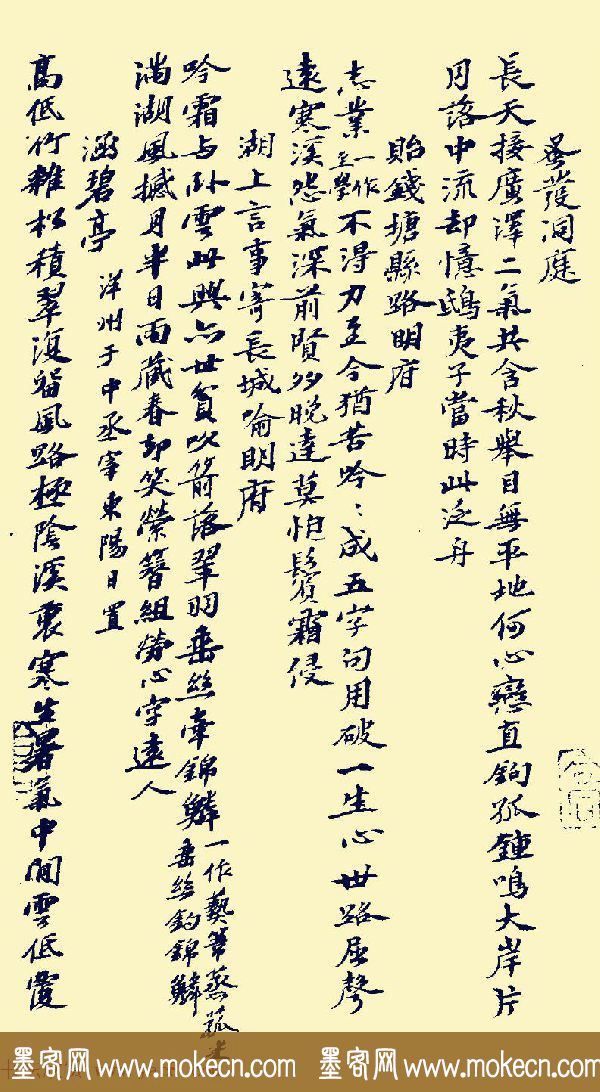 蚤發洞庭
長天接廣澤二氣共含秋舉目無平地何心戀直鉤孤鍾鳴大岸片
月落中流却憶鴟夷子當時此泛舟
貽錢塘縣路明府
志業一作至學不得力至今猶苦吟:成五字句用破一生心世路屈聲
遠寒溪怨氣深前賢多晚達莫怕鬢霜侵
湖上言事寄長城喻明府
吟霜与卧雲此興亦甘貧吹箭落翠羽垂絲牽錦鱗一作藝葦蒸菰米垂絲釣錦鱗
滿湖風撼月半日雨藏春却笑縈簪組勞心字遠人
涵碧亭 洋州于中丞宰東陽日置
高低竹雜松積翠復留風路極陰溪裏寒生暑氣中閒雲低覆
墨客网 www.mokecn.com 墨客网 www.mokecn.com